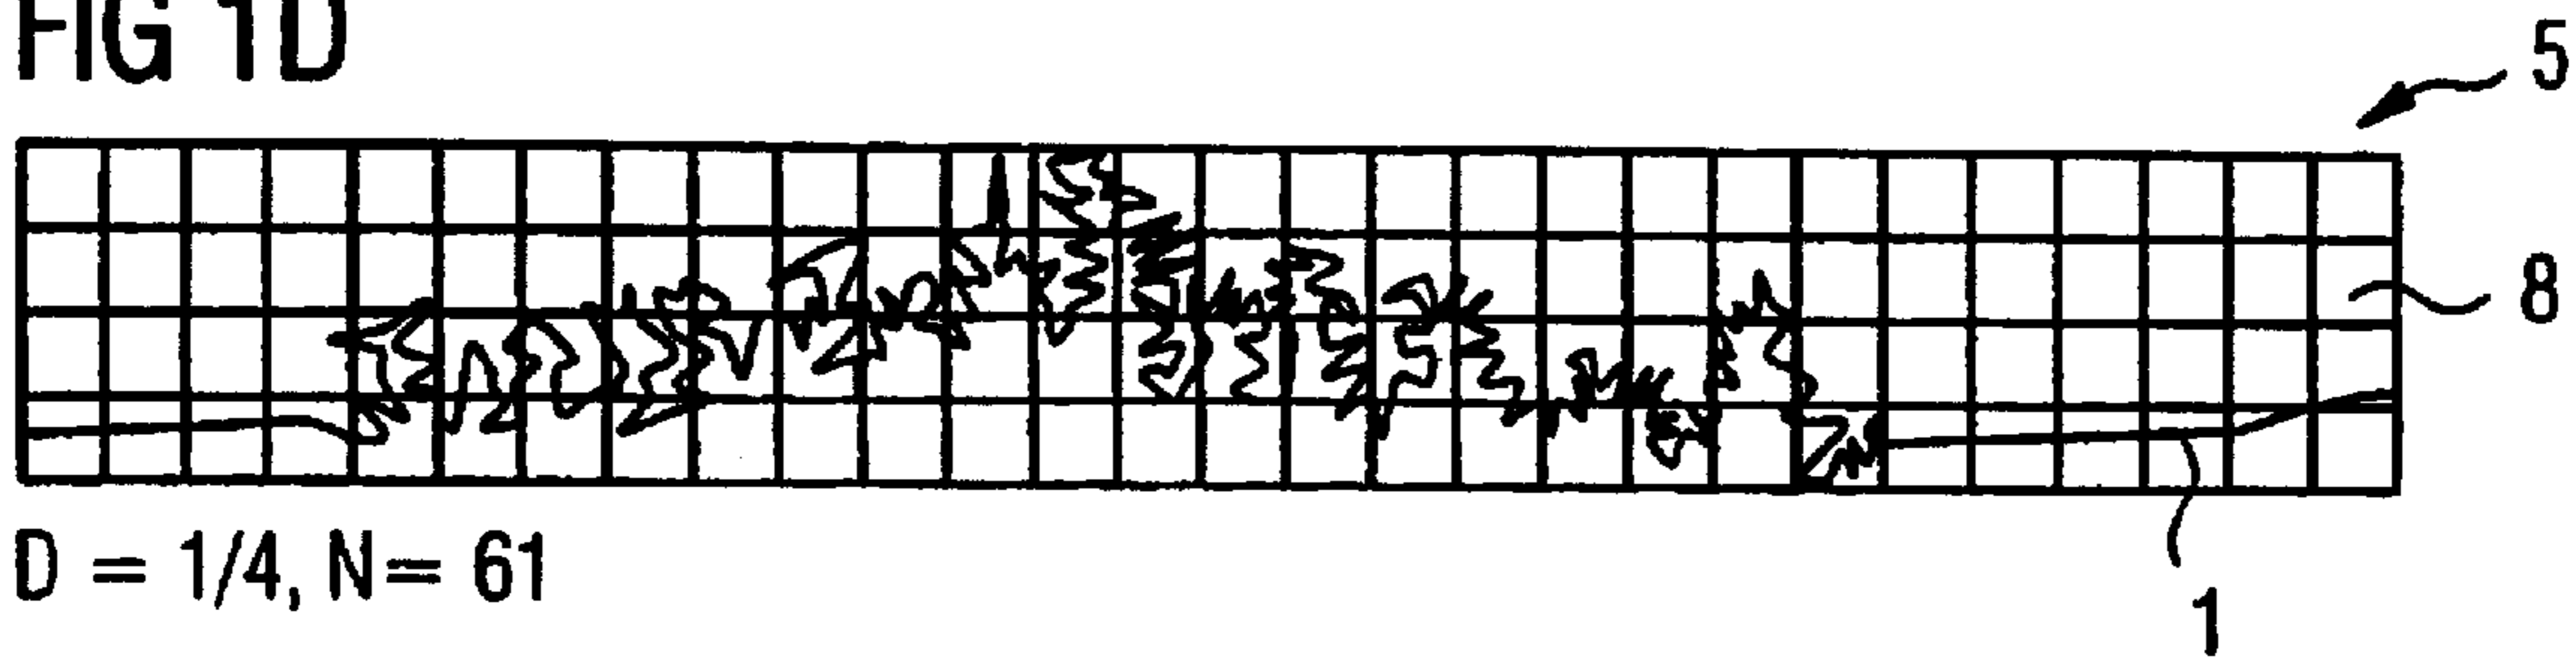 FIG 1D
5
8
D = 1/4, N = 61
1